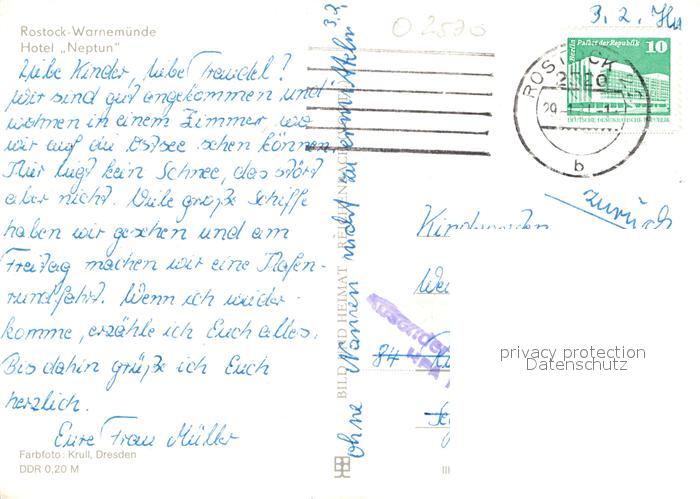 Rostock-Warnemünde
Hotel „Neptun“
Liebe Kinder, liebe Traudel!
Wir sind gut angekommen und
wohnen in einem Zimmer, wo
wir auf die Ostsee sehen können.
Hier liegt kein Schnee, das stört
aber nicht. Viele große Schiffe
haben wir gesehen und am
Freitag machen wir eine Hafen-
rundfahrt. Wenn ich wieder-
komme, erzähle ich Euch alles.
Bis dahin grüße ich Euch
herzlich.
Eure Frau Müller
Farbfoto: Krull, Dresden
DDR 0,20 M
ohne Namen nicht zu ermitteln 3.2.
BILD UND HEIMAT REICHENBACH
O 2520
3.2.
Berlin Palast der Republik
10
DEUTSCHE DEMOKRATISCHE
ROSTOCK
2520
29
b
zurück
Kindergarten
84
III
privacy protection
Datenschutz